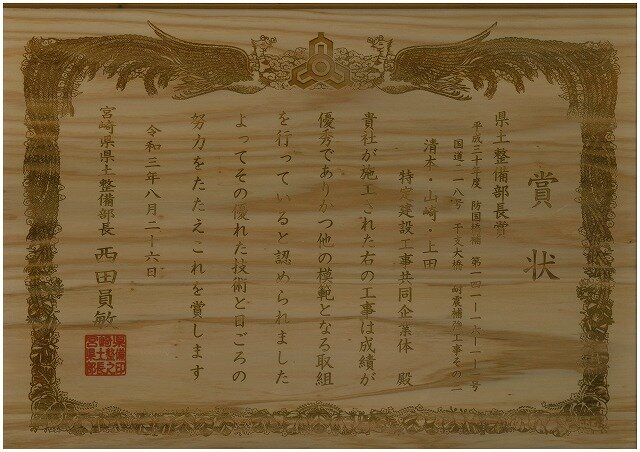 賞状
県土整備部長賞
平成三十年度 防国橋補 第一四一一六一一号
国道二一八号 干支大橋 耐震補強工事その一
清本・山崎・上田
特定建設工事共同企業体 殿
貴社が施工された右の工事は成績が
優秀でありかつ他の模範となる取組
を行っていると認められました
よってその優れた技術と日ごろの
努力をたたえこれを賞します
令和三年八月二十六日
宮崎県県土整備部長 西田員敏